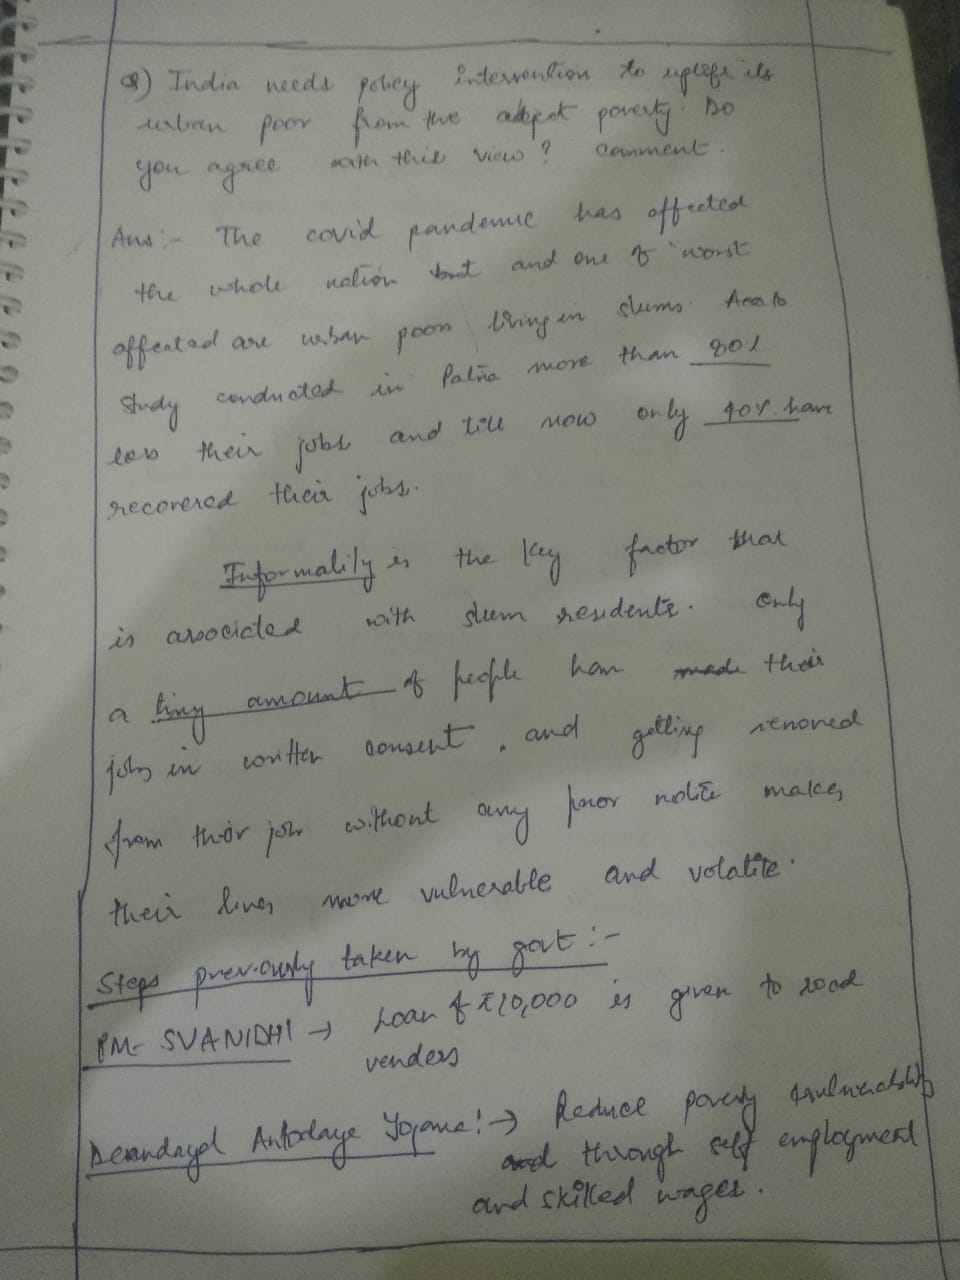 Q) India needs policy intervention to uplift its
urban poor from the abject poverty. Do
you agree with this view? Comment.
Ans:- The covid pandemic has affected
the whole nation and one of worst
affected are urban poor living in slums. Acc to
study conducted in Patna more than 80%
loss their jobs and till now only 40% have
recovered their jobs.
Informality is the key factor that
is associated with slum residents. Only
a tiny amount of people have their
jobs in written consent, and getting removed
from their job without any prior notice makes
their lives more vulnerable and volatile.
Steps previously taken by govt:-
PM-SVANIDHI → Loan of ₹10,000 is given to road
venders
Deendayal Antodaye Yojana:→ Reduce poverty & vulnerability
through self employment
and skilled wages.